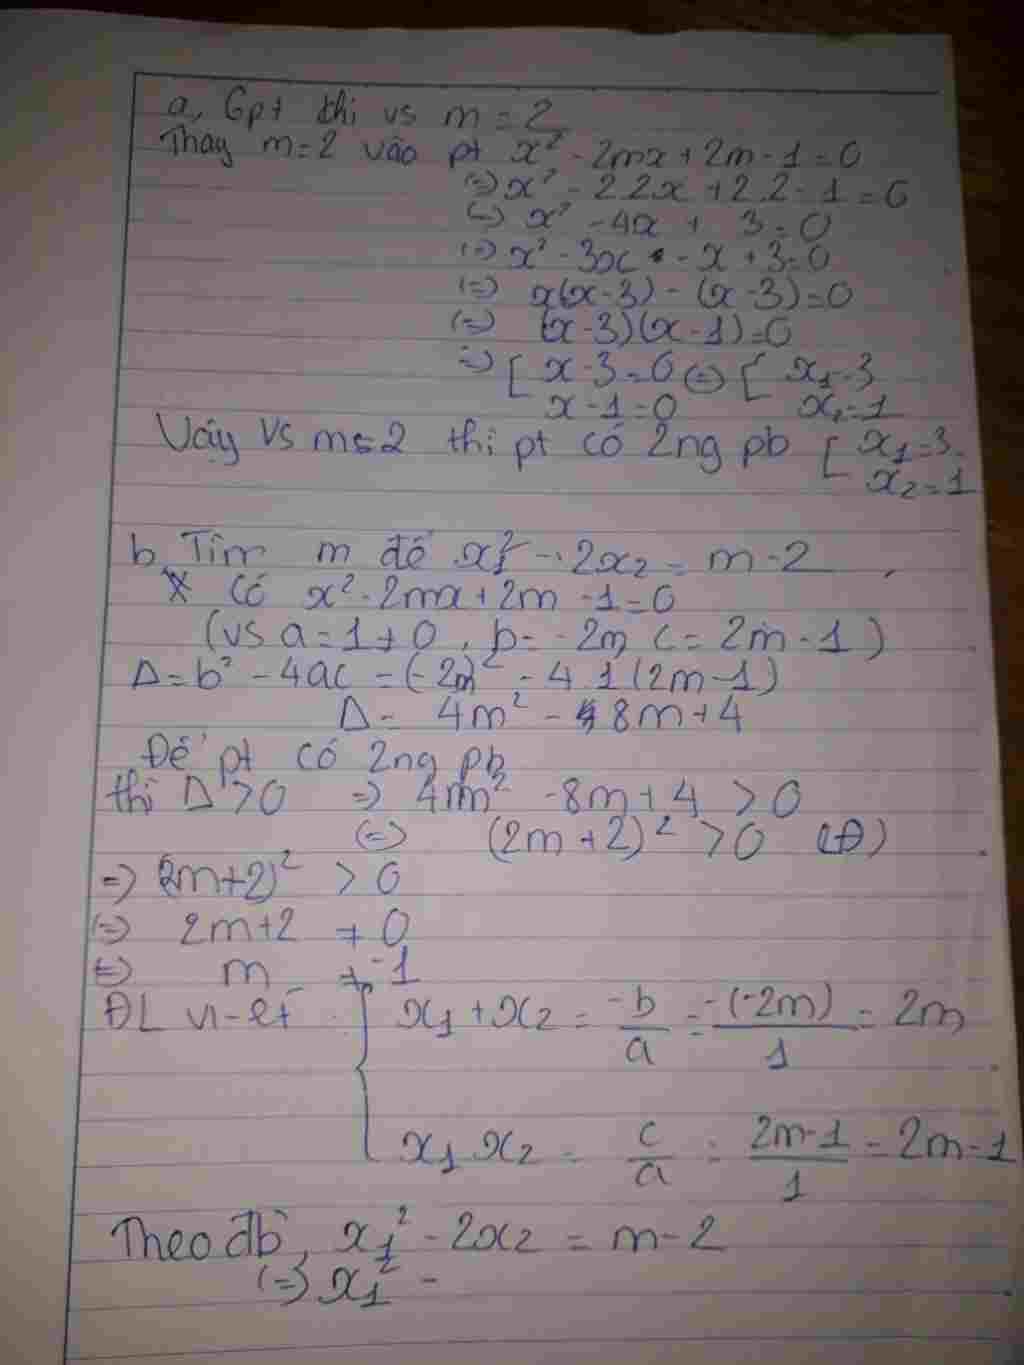 a, Gpt thi vs m = 2
Thay m = 2 vào pt x² - 2mx + 2m - 1 = 0
(=) x² - 2.2x + 2.2 - 1 = 0
(=) x² - 4x + 3 = 0
(=) x² - 3x - x + 3 = 0
(=) x(x - 3) - (x - 3) = 0
(=) (x - 3)(x - 1) = 0
=) [ x - 3 = 0 (=) [ x₁ = 3
x - 1 = 0 x₂ = 1
Vậy vs m = 2 thì pt có 2ng pb [ x₁ = 3
x₂ = 1
b, Tìm m để x₁² - 2x₂ = m - 2
* Có x² - 2mx + 2m - 1 = 0
(vs a = 1 ≠ 0, b = -2m, c = 2m - 1)
Δ = b² - 4ac = (-2m)² - 4.1(2m - 1)
Δ = 4m² - 8m + 4
Để pt có 2ng pb
thì Δ > 0 =) 4m² - 8m + 4 > 0
(=) (2m + 2)² > 0 (LĐ)
=) (2m + 2)² > 0
(=) 2m + 2 ≠ 0
(=) m ≠ -1
ĐL vi-ét { x₁ + x₂ = -b/a = -(-2m)/1 = 2m
x₁.x₂ = c/a = (2m - 1)/1 = 2m - 1
Theo đb, x₁² - 2x₂ = m - 2
(=) x₁² -